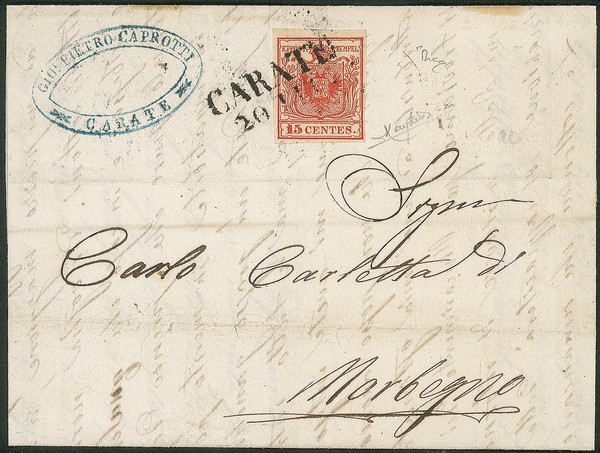 GIO. PIETRO CAPROTTI
CARATE
CARATE
20
K.K.POST-STEMPEL
15 CENTES.
Sigr
Carlo Carletta di
Morbegno